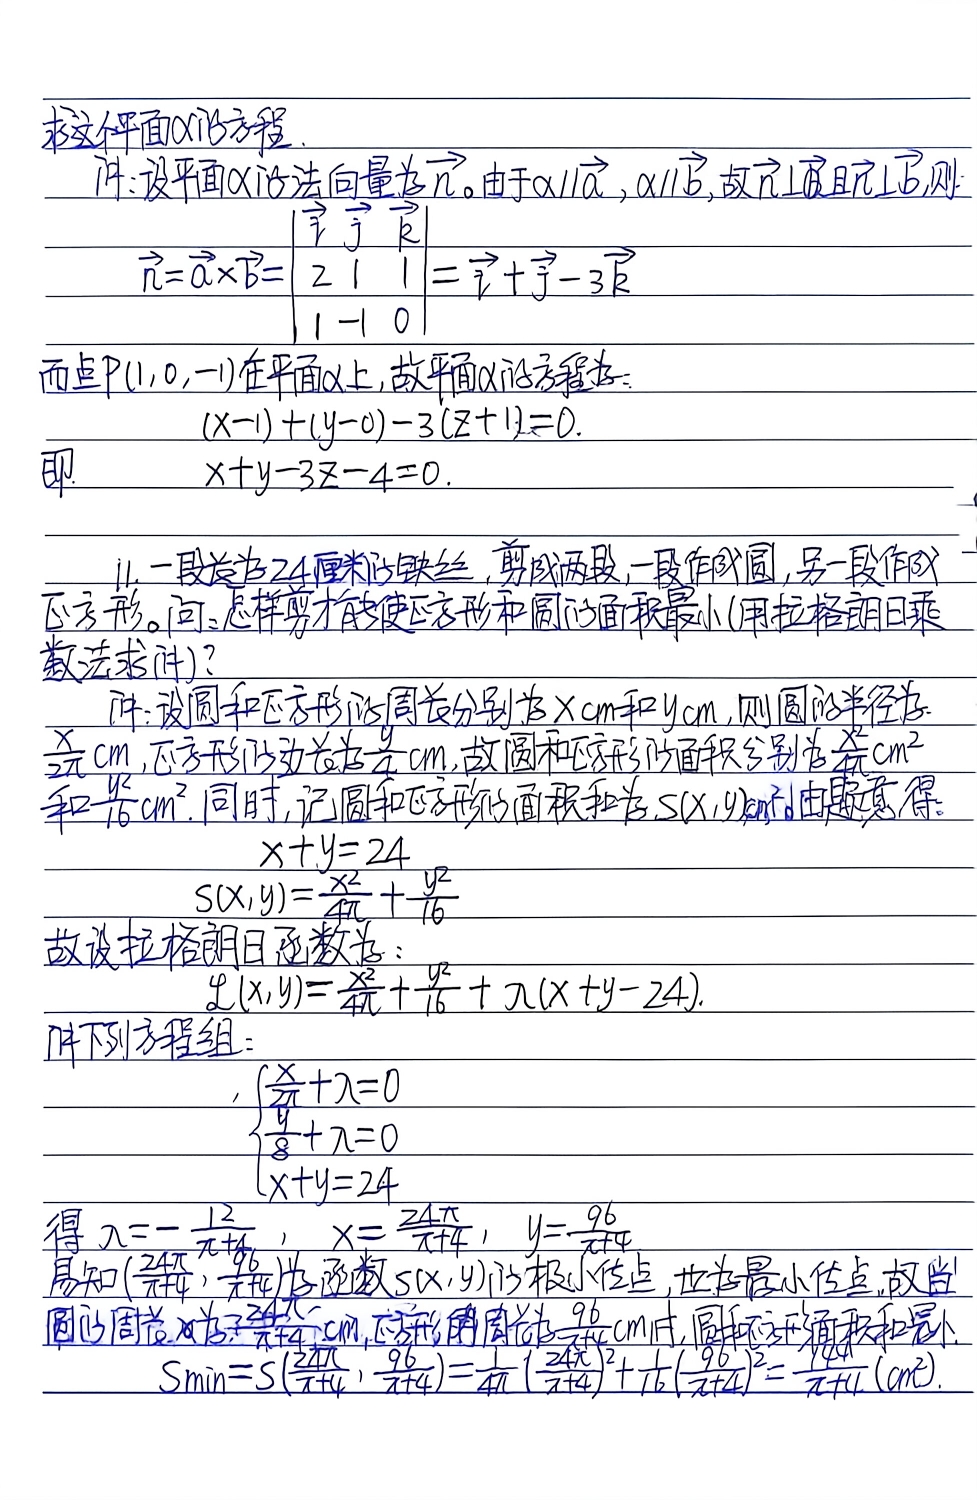 求这个平面α的方程.
解:设平面α的法向量为n⃗。由于α//a⃗,α//b⃗,故n⃗⊥a⃗且n⃗⊥b⃗,则:
n⃗=a⃗×b⃗=| i⃗ j⃗ k⃗ ; 2 1 1 ; 1 -1 0 |=i⃗+j⃗-3k⃗
而点P(1,0,-1)在平面α上,故平面α的方程为:
(x-1)+(y-0)-3(z+1)=0.
即 x+y-3z-4=0.
11.一段长为24厘米的铁丝,剪成两段,一段作成圆,另一段作成
正方形。问:怎样剪才能使正方形和圆的面积最小(用拉格朗日乘
数法求解)?
解:设圆和正方形的周长分别为xcm和ycm,则圆的半径为
x/2π cm,正方形的边长为y/4 cm,故圆和正方形的面积分别为x²/4π cm²
和y²/16 cm².同时,记圆和正方形的面积和为S(x,y)cm²。由题意得:
x+y=24
S(x,y)=x²/4π+y²/16
故设拉格朗日函数为:
L(x,y)=x²/4π+y²/16+λ(x+y-24).
解下列方程组:
{ x/2π+λ=0
y/8+λ=0
x+y=24
得 λ=-12/π+4, x=24π/π+4, y=96/π+4
易知(24π/π+4,96/π+4)为函数S(x,y)的极小值点,也为最小值点,故当
圆的周长x为24π/π+4 cm,正方形的周长为96/π+4 cm时,圆和正方形面积和最小.
Smin=S(24π/π+4,96/π+4)=1/4π(24π/π+4)²+1/16(96/π+4)²=144/π+4(cm²).